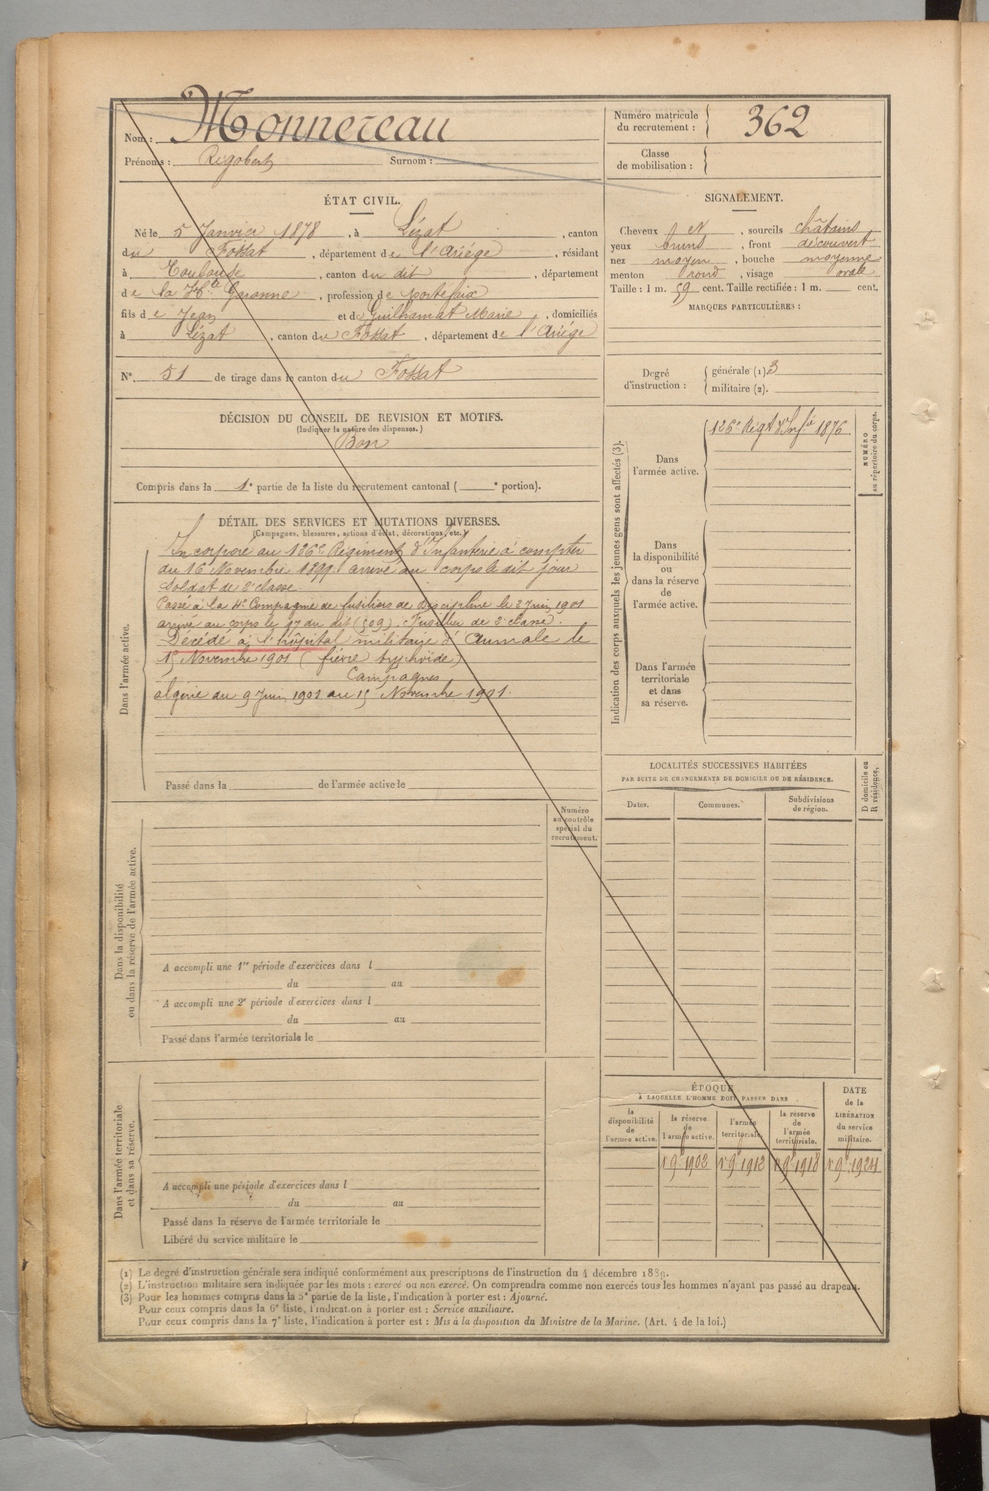 Nom : Monnereau
Prénoms : Rigobert Surnom :
Numéro matricule
du recrutement : 362
Classe
de mobilisation :
ÉTAT CIVIL.
Né le 5 Janvier 1878, à Lézat, canton
du Fossat, département de l'Ariége, résidant
à Toulouse, canton du dit, département
de la Hte Garonne, profession de portefaix
fils de Jean et de Guilhamat Marie, domiciliés
à Lézat, canton du Fossat, département de l'Ariége
N° 51 de tirage dans le canton du Fossat
SIGNALEMENT.
Cheveux et, sourcils châtains
yeux bruns, front découvert
nez moyen, bouche moyenne
menton rond, visage ovale
Taille : 1 m. 59 cent. Taille rectifiée : 1 m. cent.
MARQUES PARTICULIÈRES :
Degré
d'instruction :
générale (1) 3
militaire (2).
DÉCISION DU CONSEIL DE REVISION ET MOTIFS.
(Indiquer la nature des dispenses.)
Bon
Compris dans la 1e partie de la liste du recrutement cantonal ( e portion).
DÉTAIL DES SERVICES ET MUTATIONS DIVERSES.
(Campagnes, blessures, actions d'éclat, décorations, etc.)
Dans l'armée active.
Incorporé au 126e Régiment d'Infanterie à compter
du 16 Novembre 1899 arrivé au corps le dit jour
Soldat de 2e classe.
Passé à la 4e Compagnie de fusiliers de discipline le 2 Juin 1901
arrivé au corps le 27 du dit (509). Fusilier de 2e classe.
Décédé à l'hôpital militaire d'Aumale le
15 Novembre 1901 (fièvre typhoïde)
Campagnes
Algérie du 9 Juin 1901 au 15 Novembre 1901.
Passé dans la de l'armée active le
Indication des corps auxquels les jeunes gens sont affectés (3).
Dans
l'armée active.
126e Regt d'Infie 1876
NUMÉRO
au répertoire du corps.
Dans
la disponibilité
ou
dans la réserve
de
l'armée active.
Dans l'armée
territoriale
et dans
sa réserve.
LOCALITÉS SUCCESSIVES HABITÉES
PAR SUITE DE CHANGEMENTS DE DOMICILE OU DE RÉSIDENCE.
Dates.
Communes.
Subdivisions
de région.
D domicile ou
R résidence.
Dans la disponibilité
ou dans la réserve de l'armée active.
Numéro
au contrôle
spécial du
recrutement.
A accompli une 1re période d'exercices dans l
du au
A accompli une 2e période d'exercices dans l
du au
Passé dans l'armée territoriale le
Dans l'armée territoriale
et dans sa réserve.
A accompli une période d'exercices dans l
du au
Passé dans la réserve de l'armée territoriale le
Libéré du service militaire le
ÉPOQUE
À LAQUELLE L'HOMME DOIT PASSER DANS
la
disponibilité
de
l'armée active.
la réserve
de
l'armée active.
l'armée
territoriale.
la réserve
de
l'armée
territoriale.
DATE
de la
LIBÉRATION
du service
militaire.
1er 9bre 1902 1er 9bre 1912 1er 9bre 1918 1er 9bre 1924
(1) Le degré d'instruction générale sera indiqué conformément aux prescriptions de l'instruction du 4 décembre 1889.
(2) L'instruction militaire sera indiquée par les mots : exercé ou non exercé. On comprendra comme non exercés tous les hommes n'ayant pas passé au drapeau.
(3) Pour les hommes compris dans la 5e partie de la liste, l'indication à porter est : Ajourné.
Pour ceux compris dans la 6e liste, l'indication à porter est : Service auxiliaire.
Pour ceux compris dans la 7e liste, l'indication à porter est : Mis à la disposition du Ministre de la Marine. (Art. 4 de la loi.)